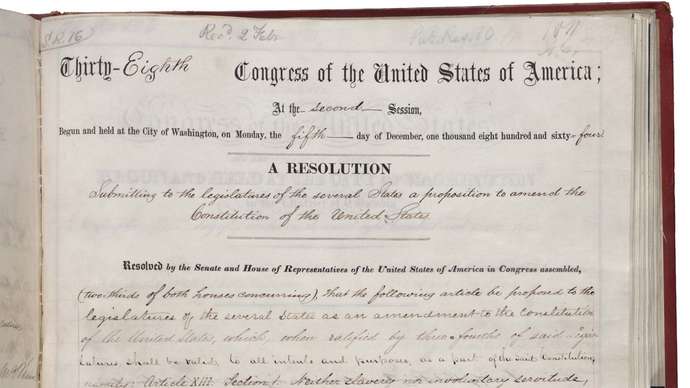 S.R. 16
Rec'd. 2 Feb.
Pub. Res. 10
Thirty-Eighth Congress of the United States of America;
At the second Session,
Begun and held at the City of Washington, on Monday, the fifth day of December, one thousand eight hundred and sixty-four
A RESOLUTION
Submitting to the legislatures of the several States a proposition to amend the
Constitution of the United States
Resolved by the Senate and House of Representatives of the United States of America in Congress assembled,
(two-thirds of both houses concurring), That the following article be proposed to the
legislatures of the several States as an amendment to the Constitution
of the United States, which, when ratified by three-fourths of said legis-
latures shall be valid, to all intents and purposes, as a part of the said Constitution,
namely: Article XIII. Section 1. Neither slavery nor involuntary servitude,